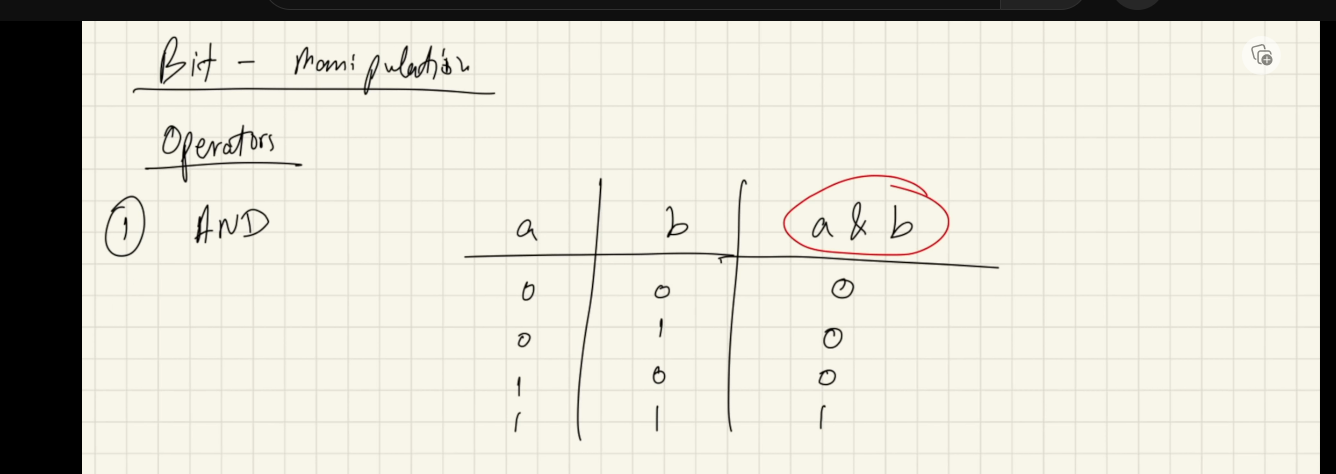 Bit - Manipulation
Operators
① AND
a b a & b
0 0 0
0 1 0
1 0 0
1 1 1